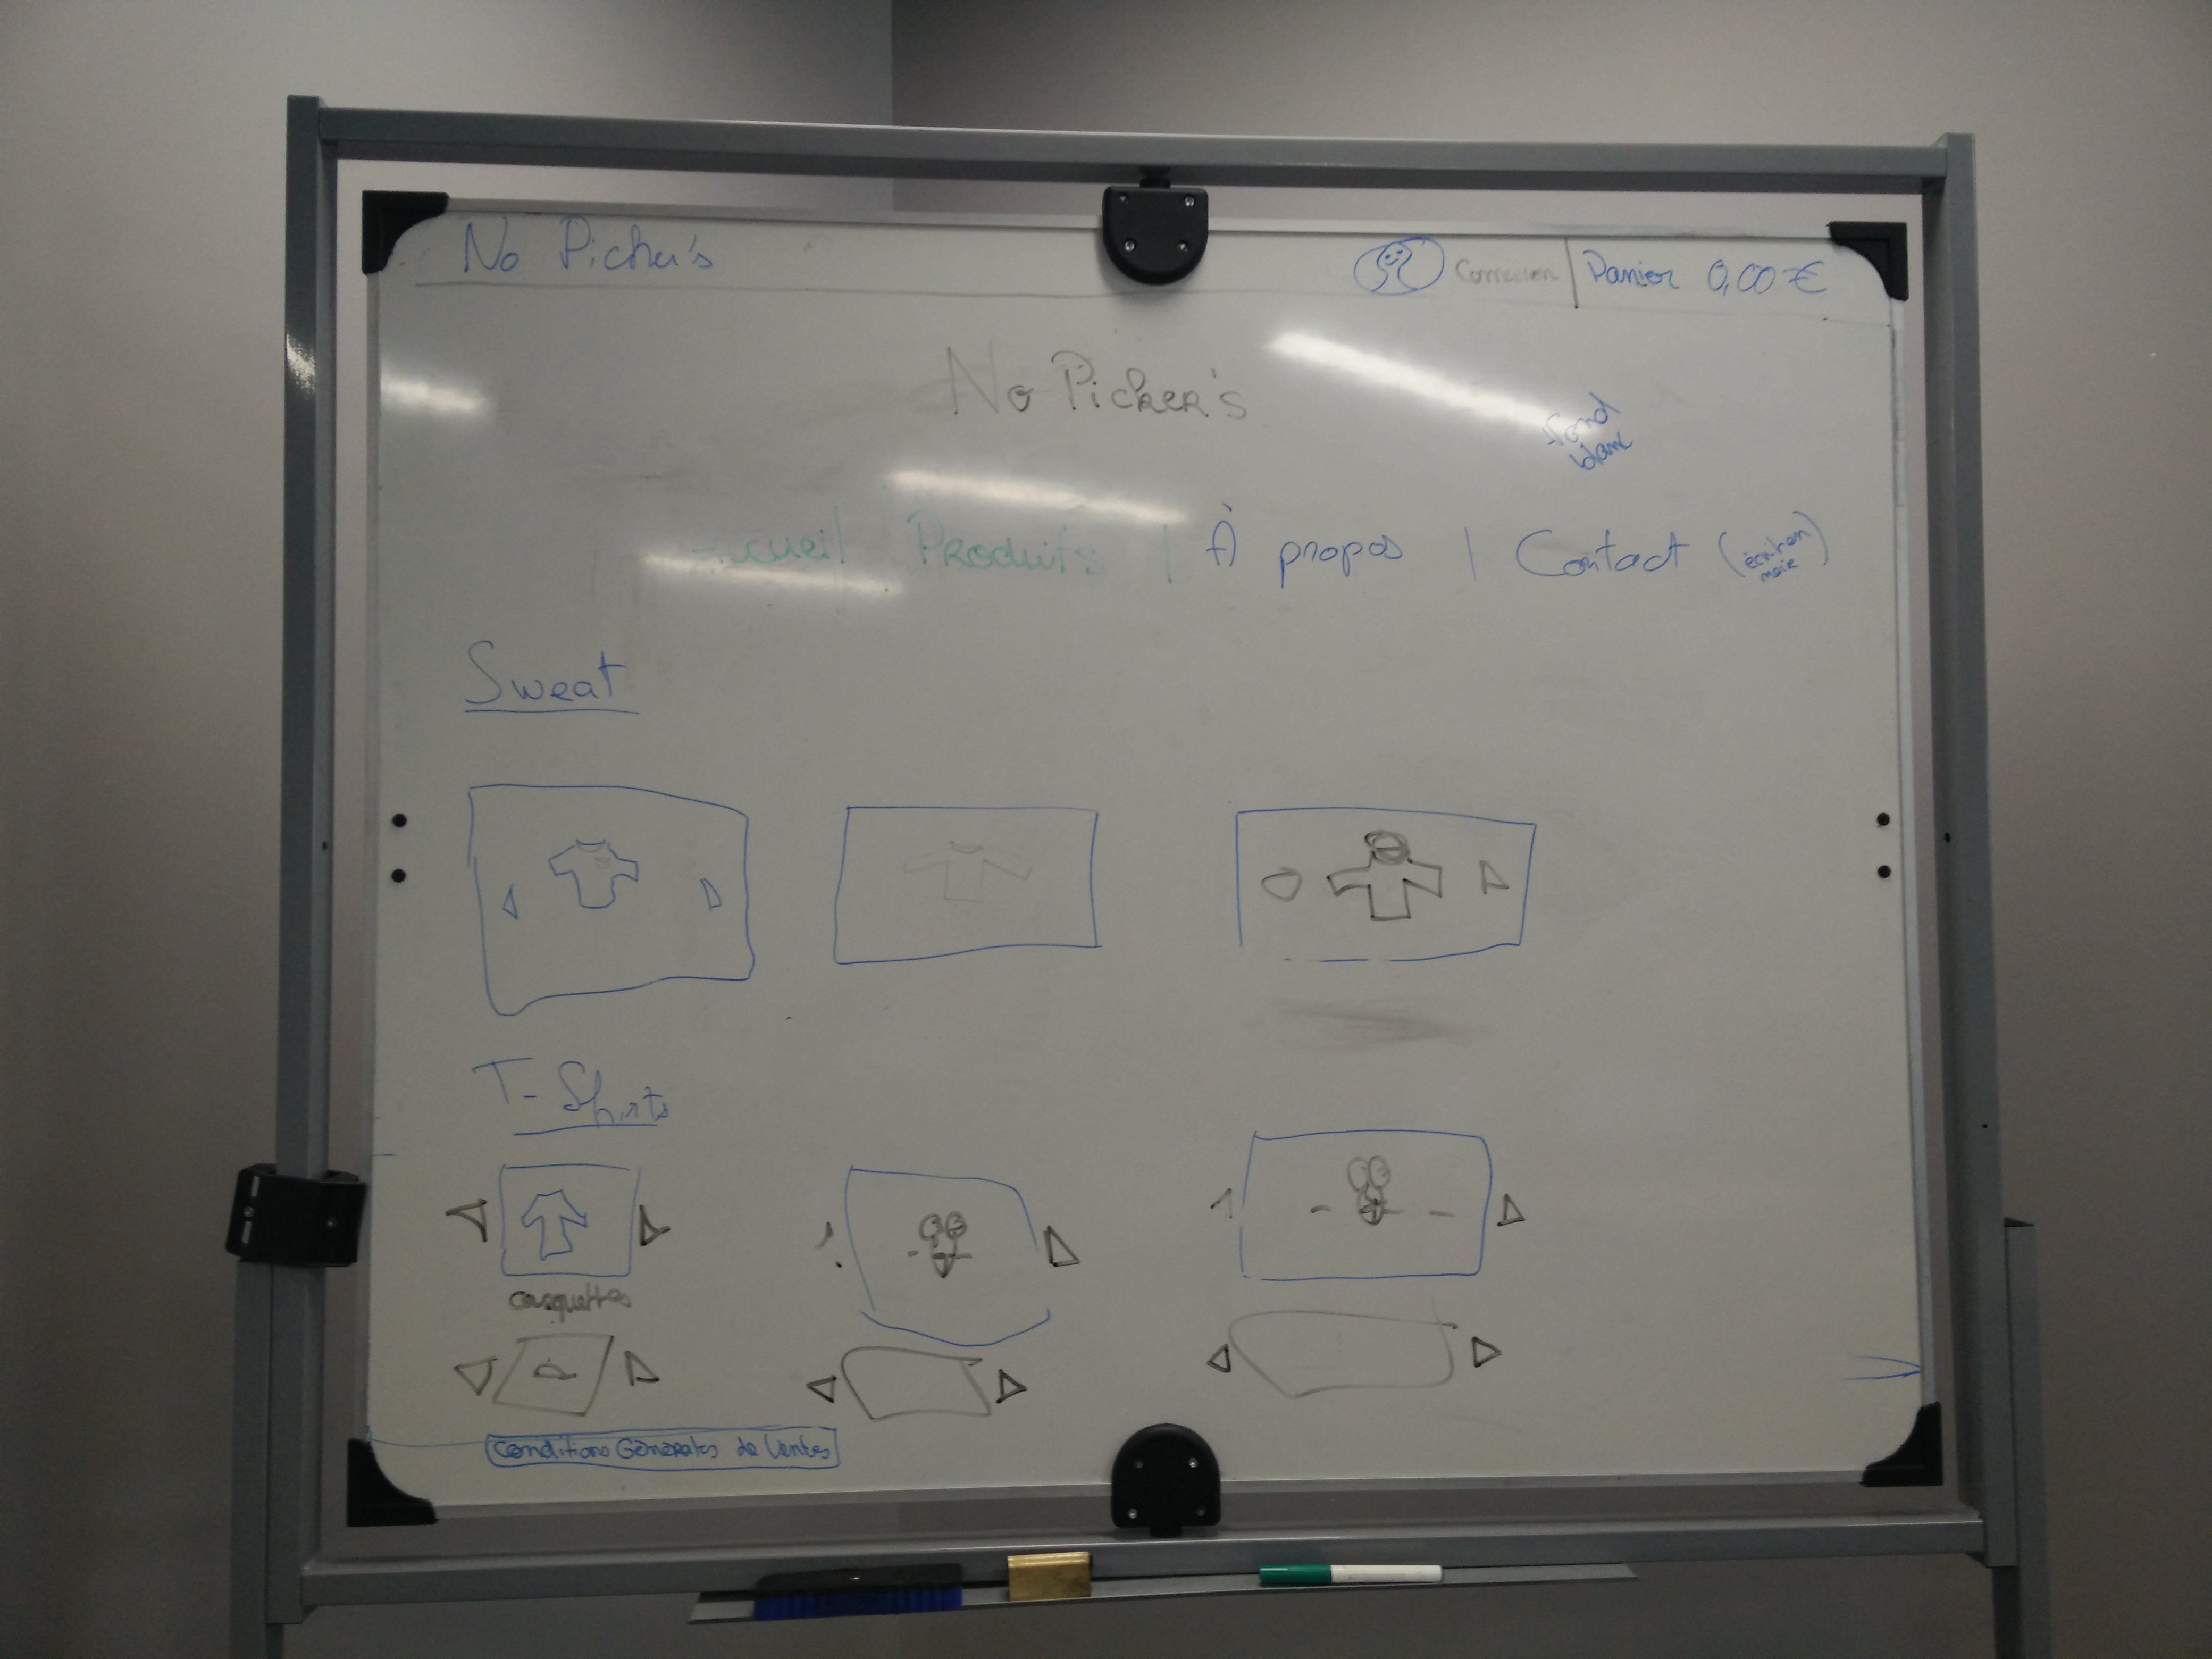 No Picker's
Connexion | Panier 0,00 €
No Picker's
fond
blanc
Accueil | Produits | À propos | Contact (écrit en
noir)
Sweat
T-Shirts
casquettes
Conditions Générales de Ventes